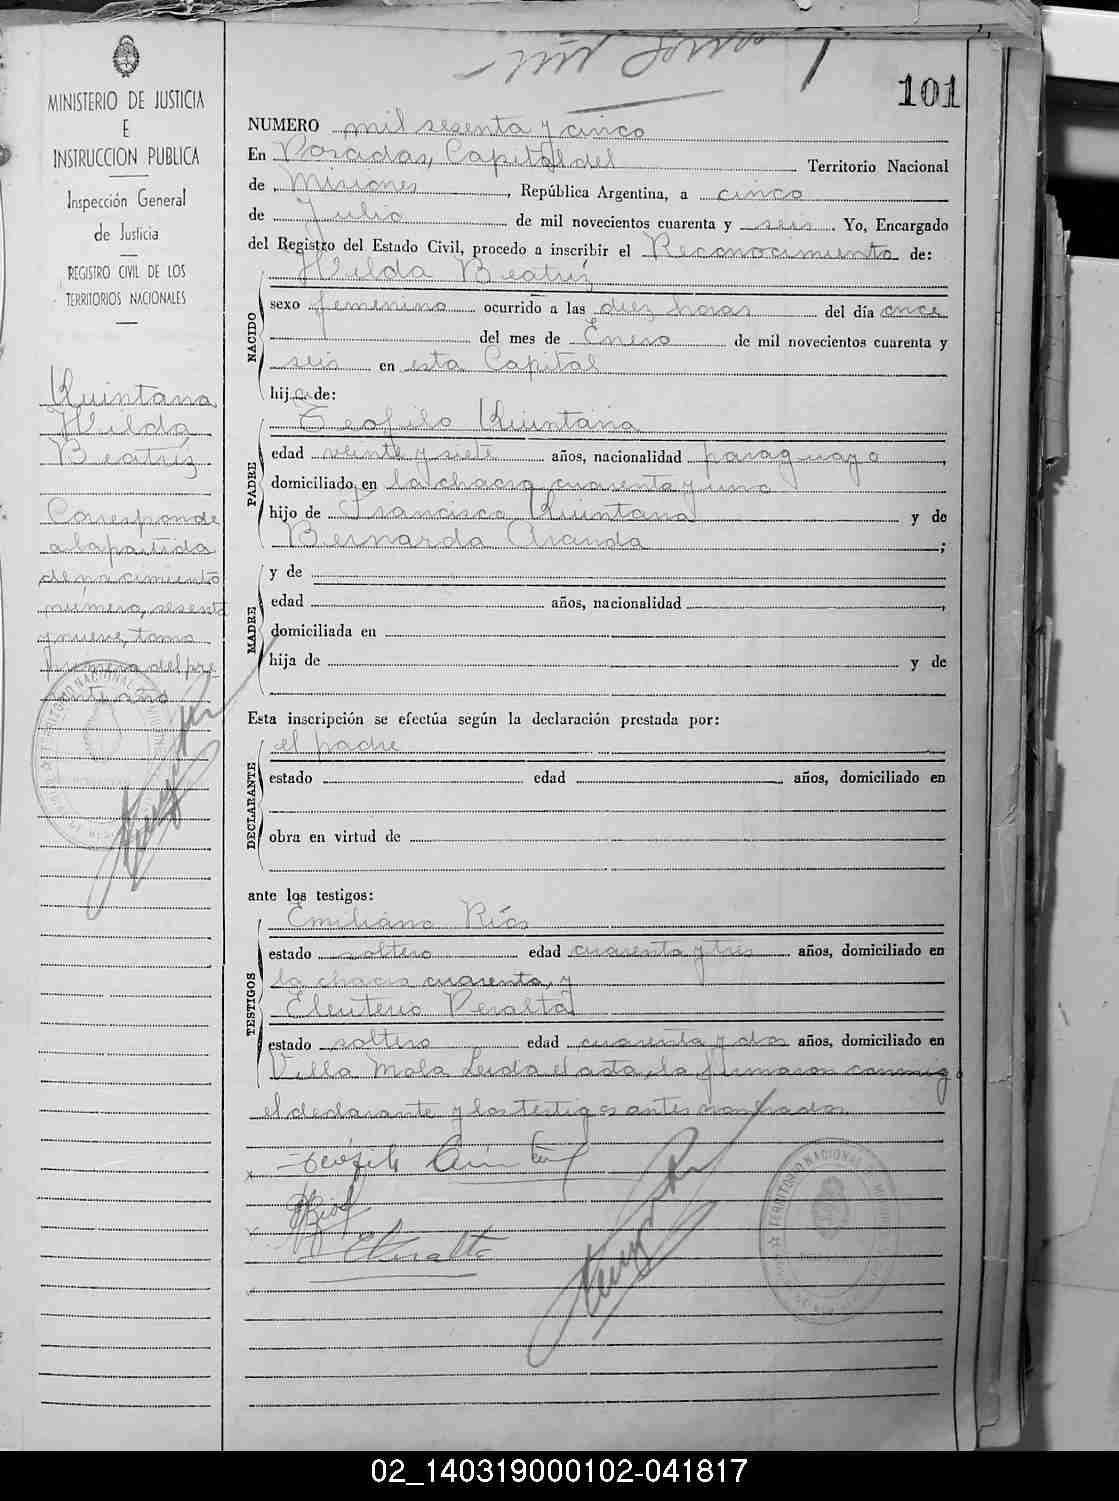 101
MINISTERIO DE JUSTICIA
E
INSTRUCCION PUBLICA
Inspección General
de Justicia
REGISTRO CIVIL DE LOS
TERRITORIOS NACIONALES
Quintana
Hilda
Beatríz
Corresponde
a la partida
de nacimiento
número, sesenta
y nueve, tomo
primero del pre-
sente año
NUMERO mil sesenta y cinco
En Posadas, Capital del Territorio Nacional
de Misiones, República Argentina, a cinco
de Julio de mil novecientos cuarenta y seis. Yo, Encargado
del Registro del Estado Civil, procedo a inscribir el Reconocimiento de:
Hilda Beatríz
NACIDO
sexo femenino ocurrido a las diez horas del día once
del mes de Enero de mil novecientos cuarenta y
seis en esta Capital
hija de:
Teofilo Quintana
PADRE
edad veinte y siete años, nacionalidad paraguayo,
domiciliado en la chacra cuarenta y uno
hijo de Francisco Quintana y de
Bernarda Aranda;
y de
MADRE
edad años, nacionalidad
domiciliada en
hija de y de
Esta inscripción se efectúa según la declaración prestada por:
el padre
DECLARANTE
estado edad años, domiciliado en
obra en virtud de
ante los testigos:
Emiliano Ríos
TESTIGOS
estado soltero edad cuarenta y tres años, domiciliado en
la chacra cuarenta, y
Eleuterio Peralta
estado soltero edad cuarenta y dos años, domiciliado en
Villa Mola Leida el acta, la firmaron conmigo
el declarante y los testigos antes nombrados.
Teofilo Quintana
ERios
EPeralta
02_140319000102-041817